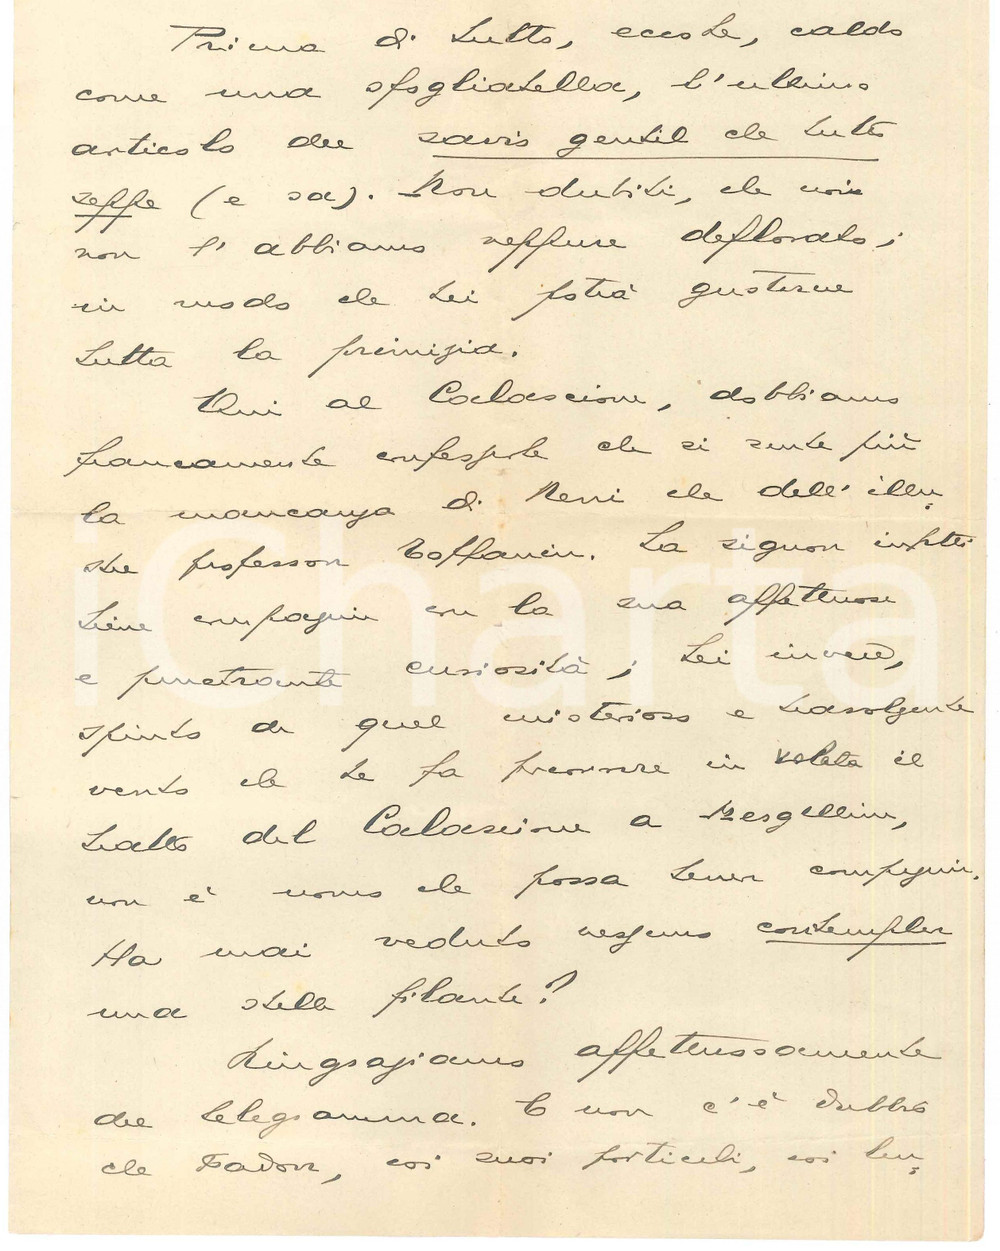 Prima di tutto, eccole, caldo
come una sfogliatella, l'ultimo
articolo del savio gentil che tutto
seppe (e sa). Non dubiti, che noi
non l'abbiamo neppure deflorato;
in modo che Lei potrà gustarne
tutta la primizia.
Qui al Calascione, dobbiamo
francamente confessarle che si sente più
la mancanza di Neni che dell'illu-
stre professor Toffanin. La signora infatti
tiene compagnia con la sua affettuosa
e penetrante curiosità; Lei invece,
spinto da quel misterioso e travolgente
vento che Le fa percorrere in volata il
tratto dal Calascione a Mergellina,
non è uomo che possa tener compagnia.
Ha mai veduto nessuno contemplar
una stella filante?
Ringraziamo affettuosamente
del telegramma. E non c'è dubbio
che Padova, coi suoi porticali, coi
iCharta